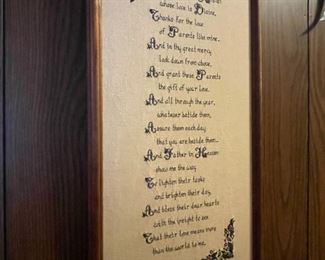 whose love is Divine,
Thanks for the love
of Parents like mine,
And in thy great mercy,
look down from above,
And grant these Parents
the gift of your love.
And all through the year,
whatever betide them,
Assure them each day
that you are beside them...
And Father in Heaven
show me the way
To lighten their tasks
and brighten their day,
And bless their dear hearts
with the insight to see
That their love means more
than the world to me.